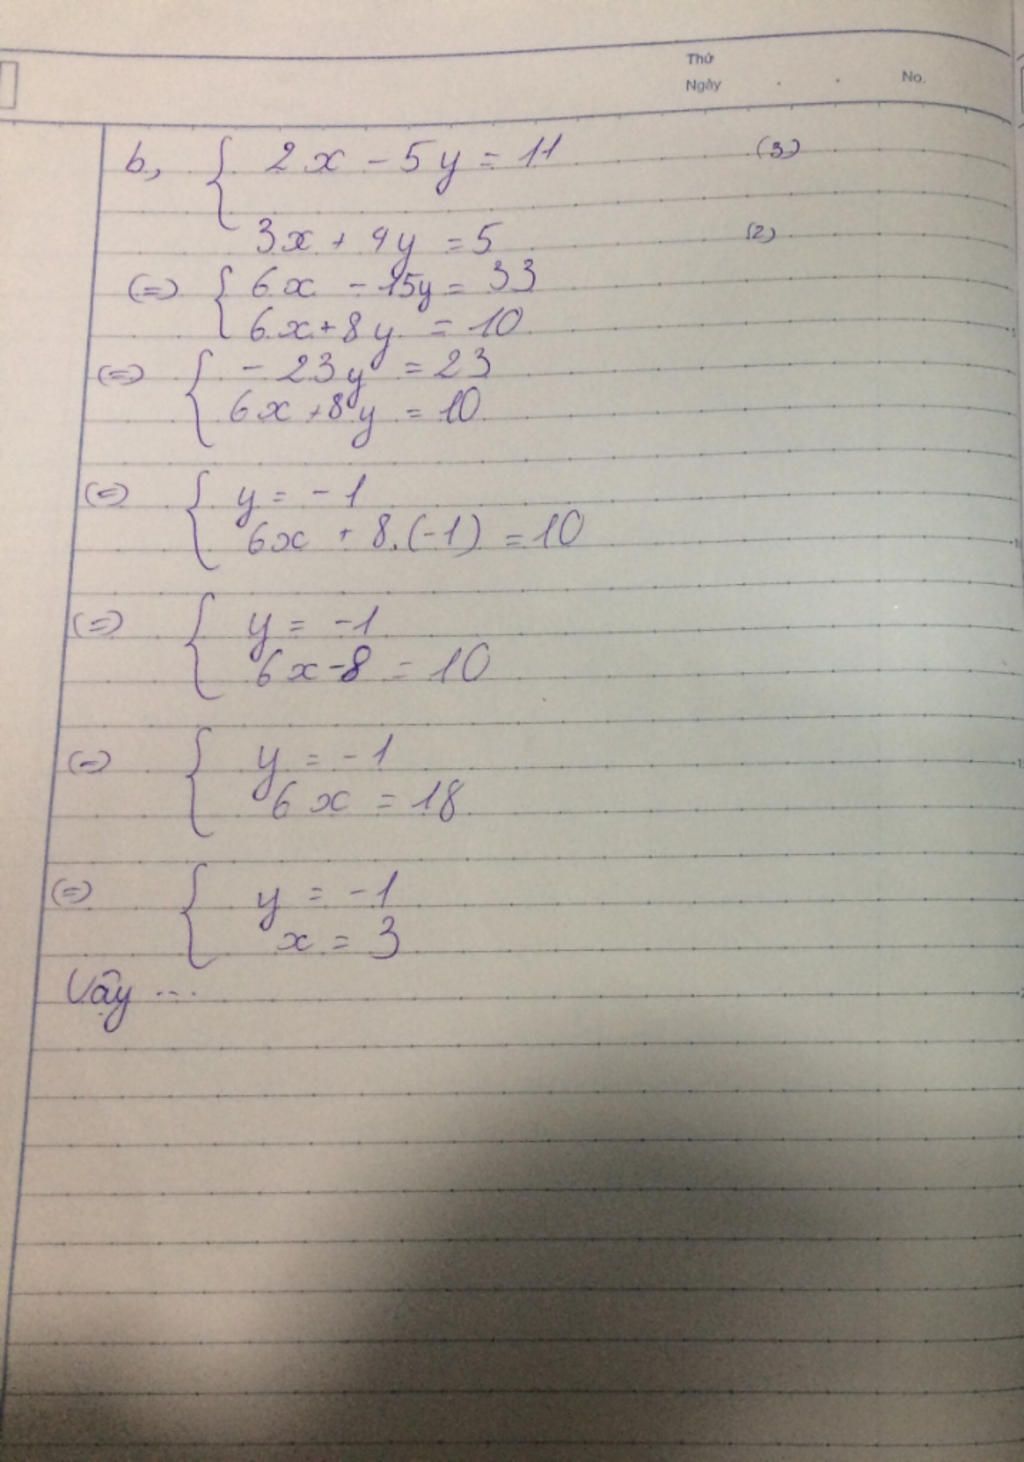 Thứ
Ngày . . No.
b, { 2x - 5y = 11 (3)
3x + 4y = 5 (2)
(=) { 6x - 15y = 33
6x + 8y = 10
(=) { - 23y = 23
6x + 8y = 10
(=) { y = -1
6x + 8.(-1) = 10
(=) { y = -1
6x - 8 = 10
(=) { y = -1
6x = 18
(=) { y = -1
x = 3
Vậy ...